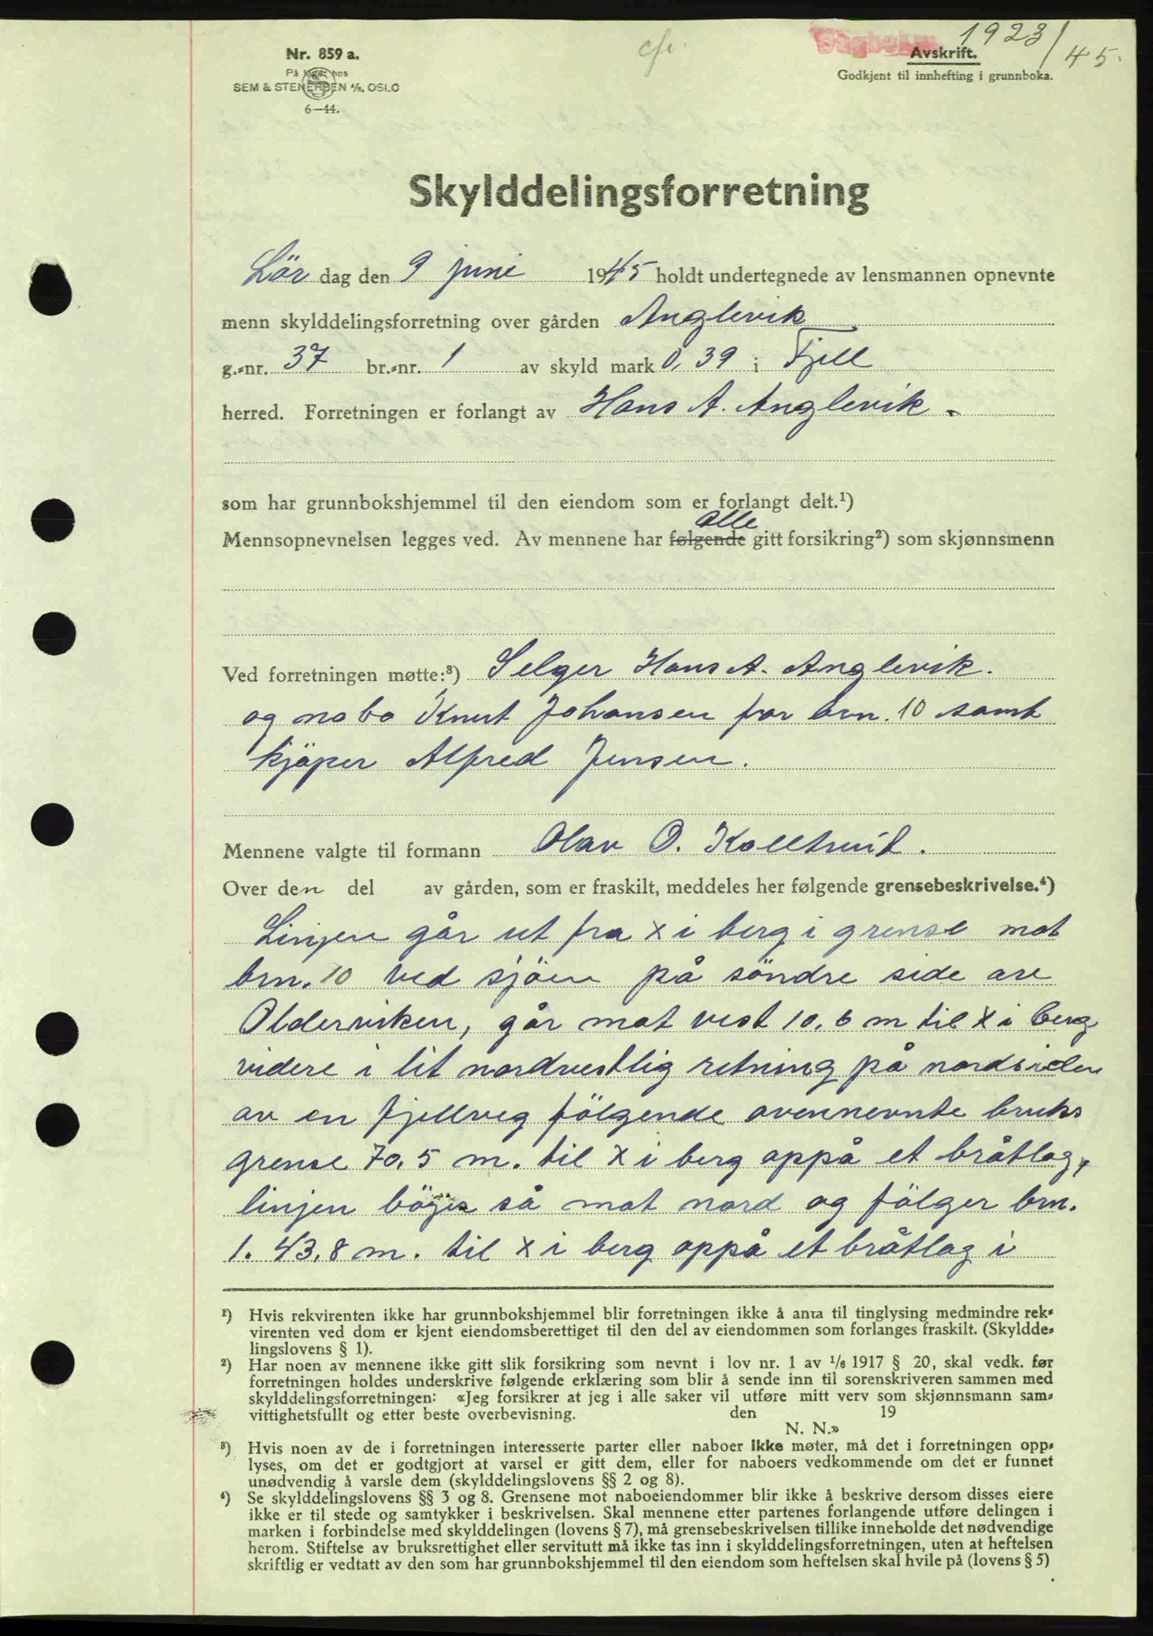 Nr. 859 a.
På lager hos
SEM & STENERSEN A/S, OSLO
6—44.
Dagboknr. 1923/45.
Avskrift.
Godkjent til innhefting i grunnboka.
Skylddelingsforretning
Lör dag den 9 juni 1945 holdt undertegnede av lensmannen opnevnte
menn skylddelingsforretning over gården Anglevik
g.-nr. 37 br.-nr. 1 av skyld mark 0,39 i Fjell
herred. Forretningen er forlangt av Hans A. Anglevik.
som har grunnbokshjemmel til den eiendom som er forlangt delt.¹)
alle
Mennsopnevnelsen legges ved. Av mennene har følgende gitt forsikring²) som skjønnsmenn
Ved forretningen møtte:³) Selger Hans A. Anglevik.
og nabo Knut Johansen for brn. 10 samt
kjöper Alfred Jensen.
Mennene valgte til formann Olav O. Kolltveit.
Over den del av gården, som er fraskilt, meddeles her følgende grensebeskrivelse.⁴)
Linjen går ut fra x i berg i grense mot
brn. 10 ved sjöen på söndre side av
Olderviken, går mot vest 10,6 m til x i berg
videre i lit nordvestlig retning på nordsiden
av en fjellveg fölgende ovennevnte bruks
grense 70,5 m. til x i berg oppå et bråtlag,
linjen böyes så mot nord og fölger brn.
1. 43,8 m. til x i berg oppå et bråtlag i
¹) Hvis rekvirenten ikke har grunnbokshjemmel blir forretningen ikke å anta til tinglysing medmindre rek-
virenten ved dom er kjent eiendomsberettiget til den del av eiendommen som forlanges fraskilt. (Skyldde-
lingslovens § 1).
²) Har noen av mennene ikke gitt slik forsikring som nevnt i lov nr. 1 av 1/6 1917 § 20, skal vedk. før
forretningen holdes underskrive følgende erklæring som blir å sende inn til sorenskriveren sammen med
skylddelingsforretningen: «Jeg forsikrer at jeg i alle saker vil utføre mitt verv som skjønnsmann sam-
vittighetsfullt og etter beste overbevisning. den 19
N. N.»
³) Hvis noen av de i forretningen interesserte parter eller naboer ikke møter, må det i forretningen opp-
lyses, om det er godtgjort at varsel er gitt dem, eller for naboers vedkommende om det er funnet
unødvendig å varsle dem (skylddelingslovens §§ 2 og 8).
⁴) Se skylddelingslovens §§ 3 og 8. Grensene mot naboeiendommer blir ikke å beskrive dersom disses eiere
ikke er til stede og samtykker i beskrivelsen. Skal mennene etter partenes forlangende utføre delingen i
marken i forbindelse med skylddelingen (lovens § 7), må grensebeskrivelsen tillike inneholde det nødvendige
herom. Stiftelse av bruksrettighet eller servitutt må ikke tas inn i skylddelingsforretningen, uten at heftelsen
skriftlig er vedtatt av den som har grunnbokshjemmel til den eiendom som heftelsen skal hvile på (lovens § 5)